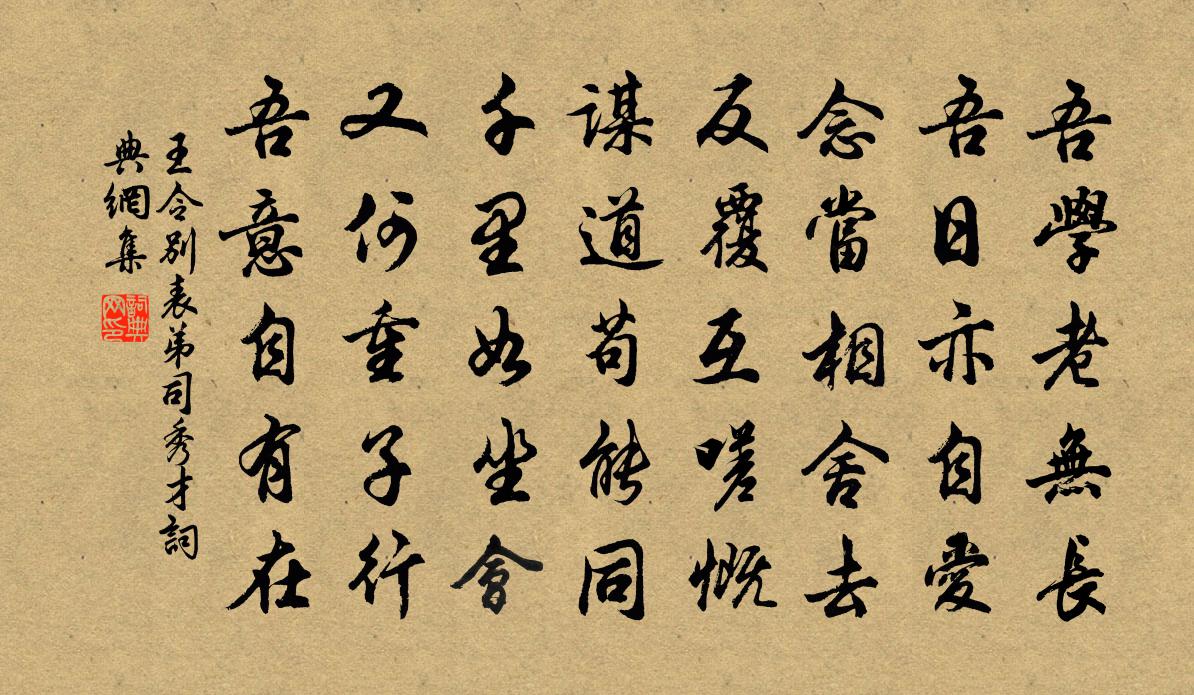 吾學老無長
吾日亦自愛
念當相舍去
反覆互嗟慨
謀道苟能同
千里如坐會
又何重子行
吾意自有在
王令別表弟司秀才詞
典網集
詞典
网印